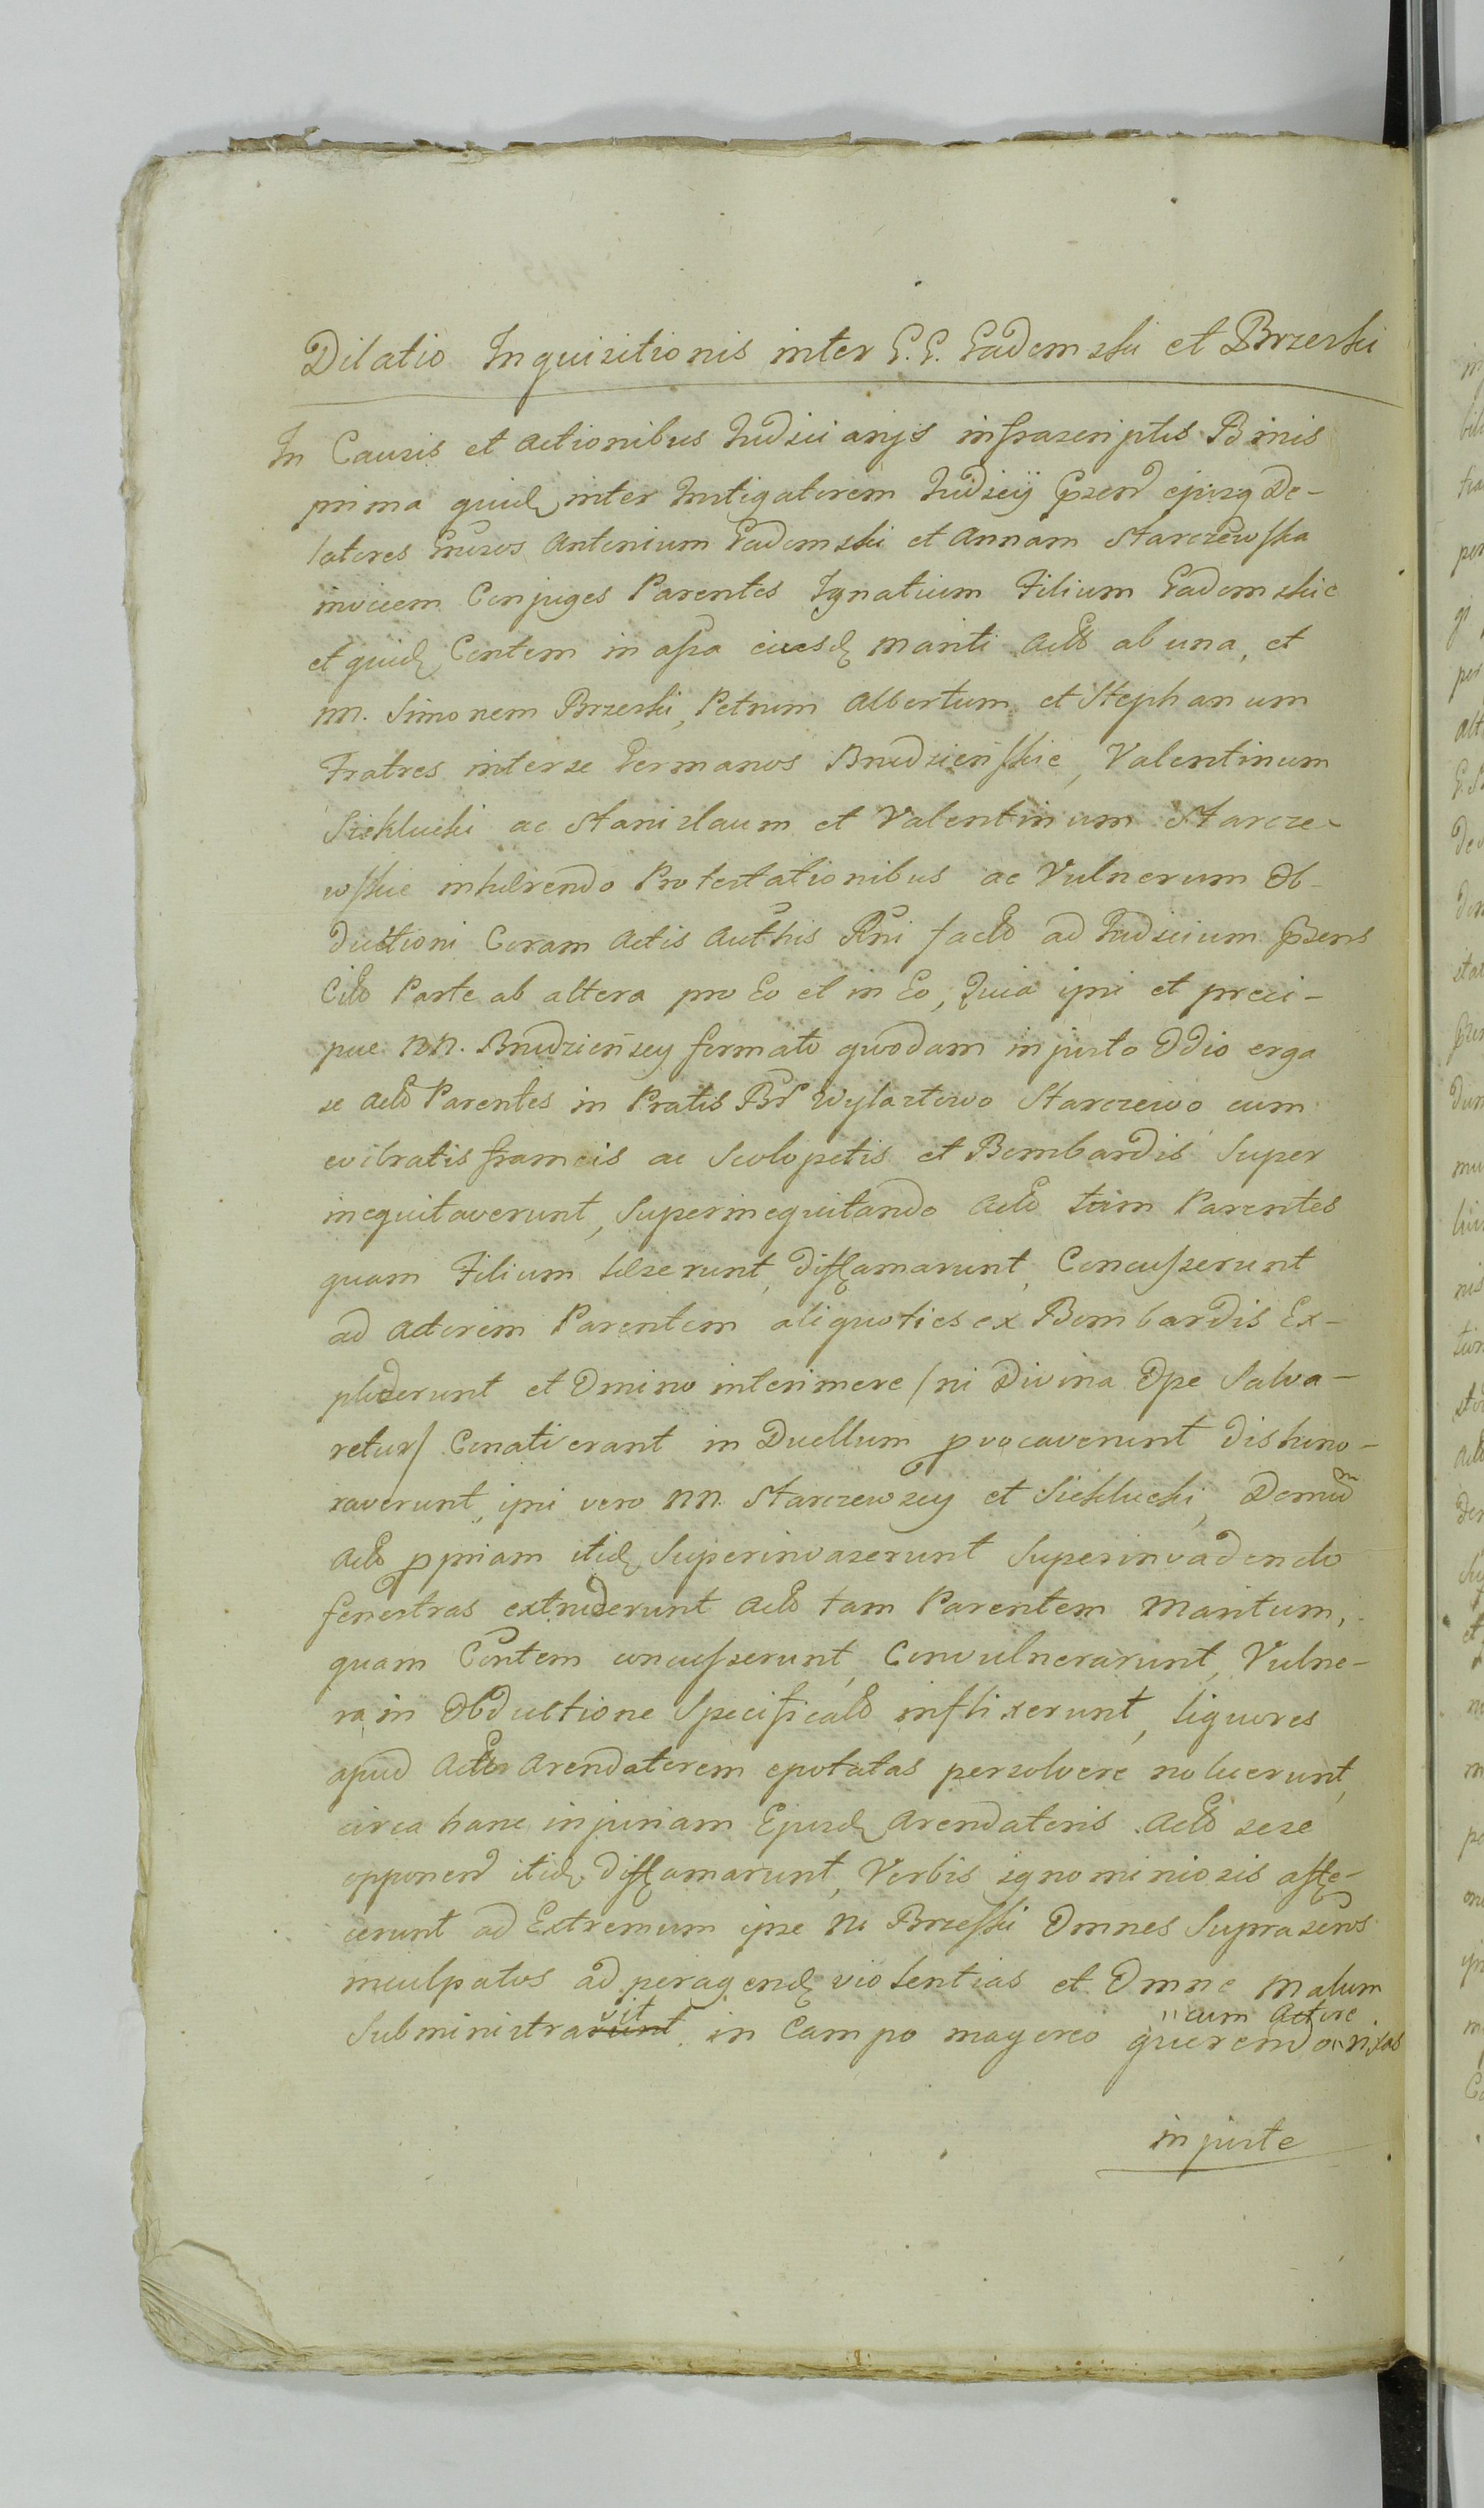 Dilatio Inquisitionis inter G. G. Gadomski et Brzeski
In Causis et Actionibus Judiciarijs infrascriptis Binis
prima quidę inter Instigatorem Judicÿ pzend ejusq De-
latores Gnrsos Antonium Gadomski et Annam Starczewska
invicem Conjuges Parentes Ignatium Filium Gadomskie
et quidę Contem in assa eiusdę Mariti Acto ab una, et
nn. Simonem Brzeski, Petrum Albertum et Stephanum
Fratres interse Germanos Brudzienskie, Valentinum
Sieklucki ac Stanislaum et Valentinum Starcze-
wskie inhærendo Protestationibus ac Vulnerum Ob-
ductioni Coram Actis Authis Rni facto ad Judicium pzens
Cito Parte ab altera pro Eo et in Eo, Quia ipsi et preci-
pue nn. Brudzieńscy formato quodam injusto Odio erga
se Acto Parentes in Pratis Bd Wylaztowo Starczewo cum
evibratis frameis ac Sclopetis et Bombardis Super
inequitaverunt, Superinequitando Acto tam Parentes
quam Filium læserunt, diffamarunt, Concusserunt
ad Actorem Parentem aliquoties ex Bombardis Ex-
ploserunt et Omnino interimere /ni Divina Ope Salva-
retur/ Conati erant in Duellum pvocaverunt dishono-
raverunt, ipsi vero nn. Starczewscy et Sieklucki, Domū
Acto ppriam itidę Superinvaserunt Superinvadendo
fenestras extruserunt Acto tam Parentem Maritum,
quam Contem concusserunt, Convulnerarunt, Vulne-
ra in Obductione Specificato inflixerunt, liquores
apud Acto Arendatorem epotatas persolvere noluerunt,
circa hanc injuriam Ejusdę Arendatoris Acto sese
opponend itidę diffamarunt, Verbis ignominiosis affe-
cerunt ad Extremum ipse N. Brzeski Omnes Suprascros
inculpatos ad peragendę violentias et Omne malum
vit " cum Actore
Subministrarunt in Campo magereo querendo " rixas
injuste